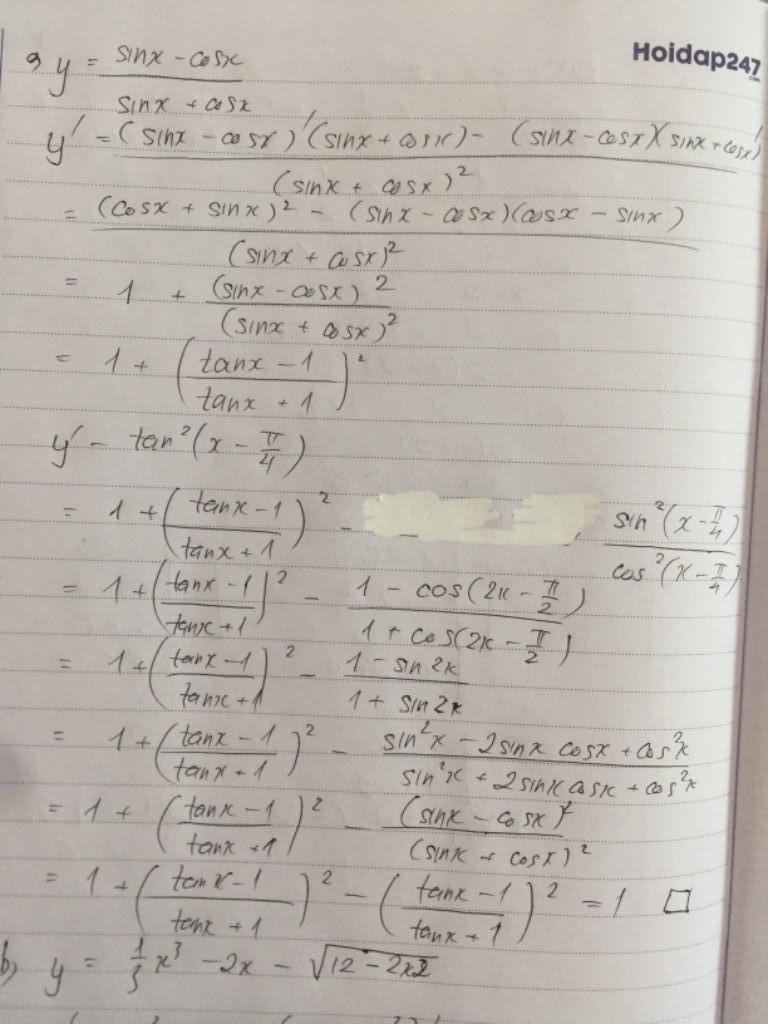 Hoidap247
.com
a, y = (sinx - cosx)/(sinx + cosx)
y' = ((sinx - cosx)'(sinx + cosx) - (sinx - cosx)(sinx + cosx)')/(sinx + cosx)²
= ((cosx + sinx)² - (sinx - cosx)(cosx - sinx))/(sinx + cosx)²
= 1 + (sinx - cosx)²/(sinx + cosx)²
= 1 + ((tanx - 1)/(tanx + 1))²
y' - tan²(x - π/4)
= 1 + ((tanx - 1)/(tanx + 1))² - sin²(x - π/4)/cos²(x - π/4)
= 1 + ((tanx - 1)/(tanx + 1))² - (1 - cos(2x - π/2))/(1 + cos(2x - π/2))
= 1 + ((tanx - 1)/(tanx + 1))² - (1 - sin2x)/(1 + sin2x)
= 1 + ((tanx - 1)/(tanx + 1))² - (sin²x - 2sinx cosx + cos²x)/(sin²x + 2sinx cosx + cos²x)
= 1 + ((tanx - 1)/(tanx + 1))² - (sinx - cosx)²/(sinx + cosx)²
= 1 + ((tanx - 1)/(tanx + 1))² - ((tanx - 1)/(tanx + 1))² = 1 □
b, y = 1/3 x³ - 2x - √(12 - 2x2)